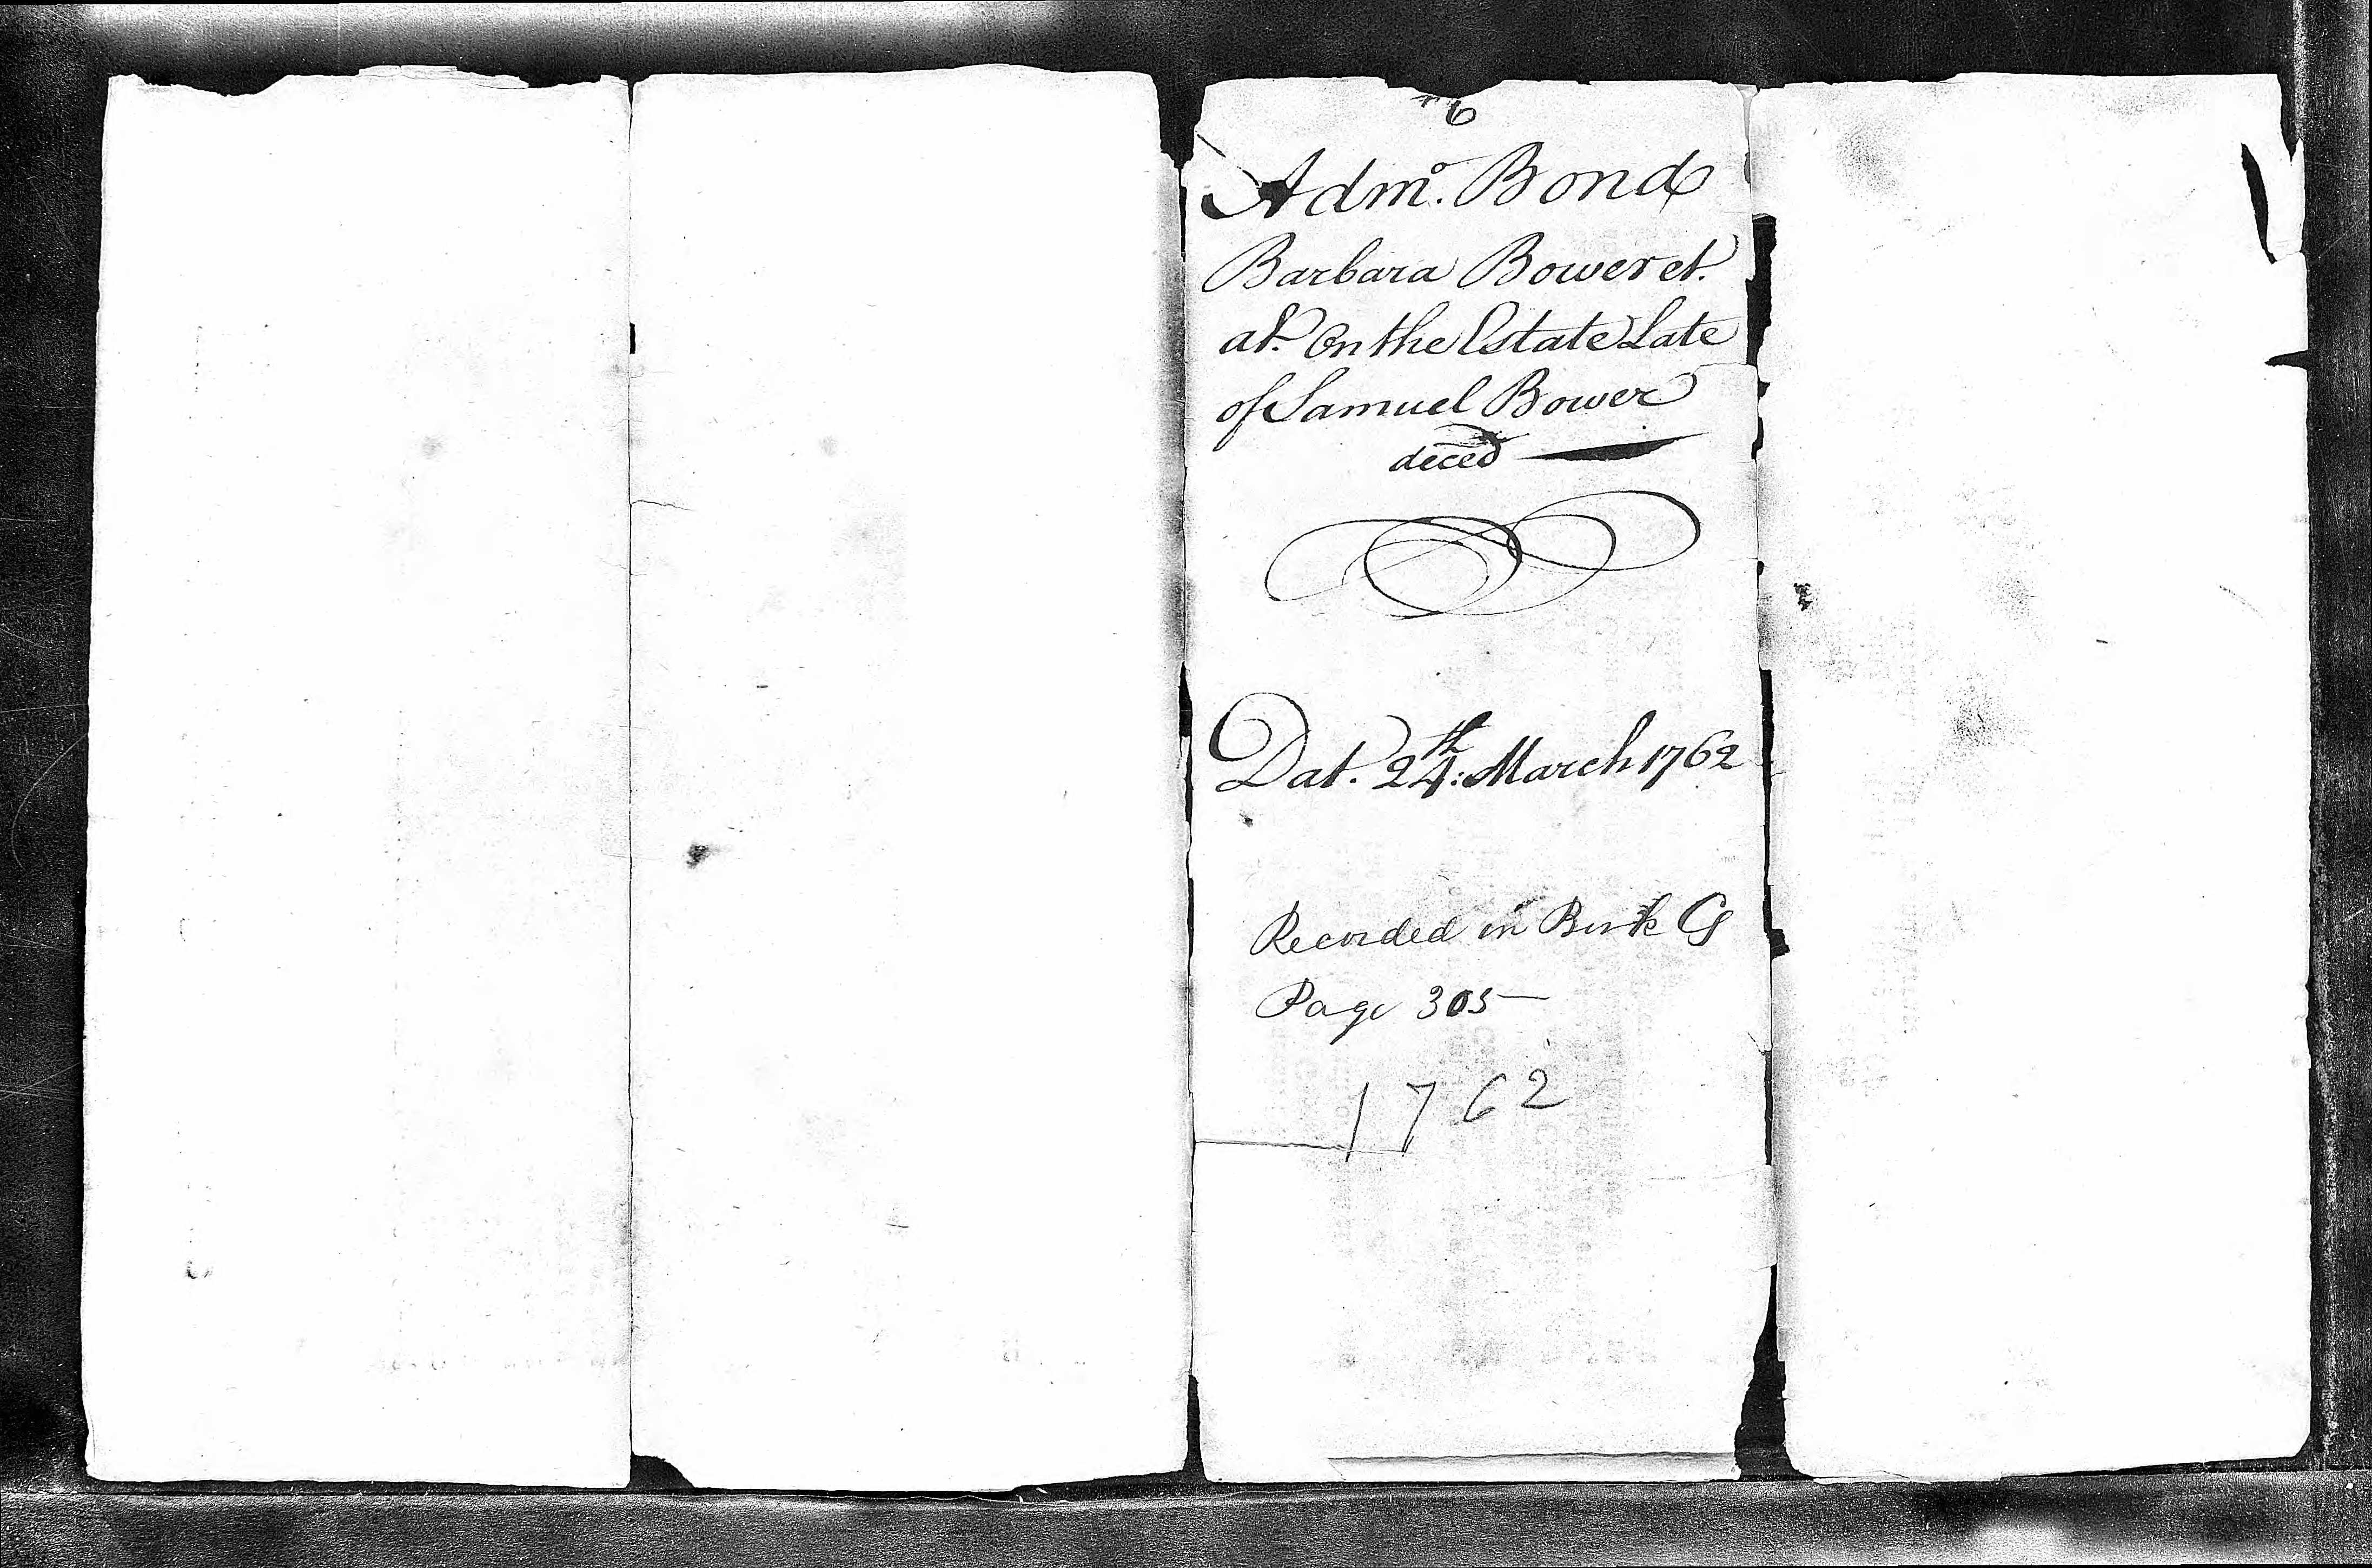 6
Admo. Bond
Barbara Bower et.
al. On the Estate Late
of Samuel Bower
deced
Dat. 24th: March 1762
Recorded in Book G
Page 305
1762